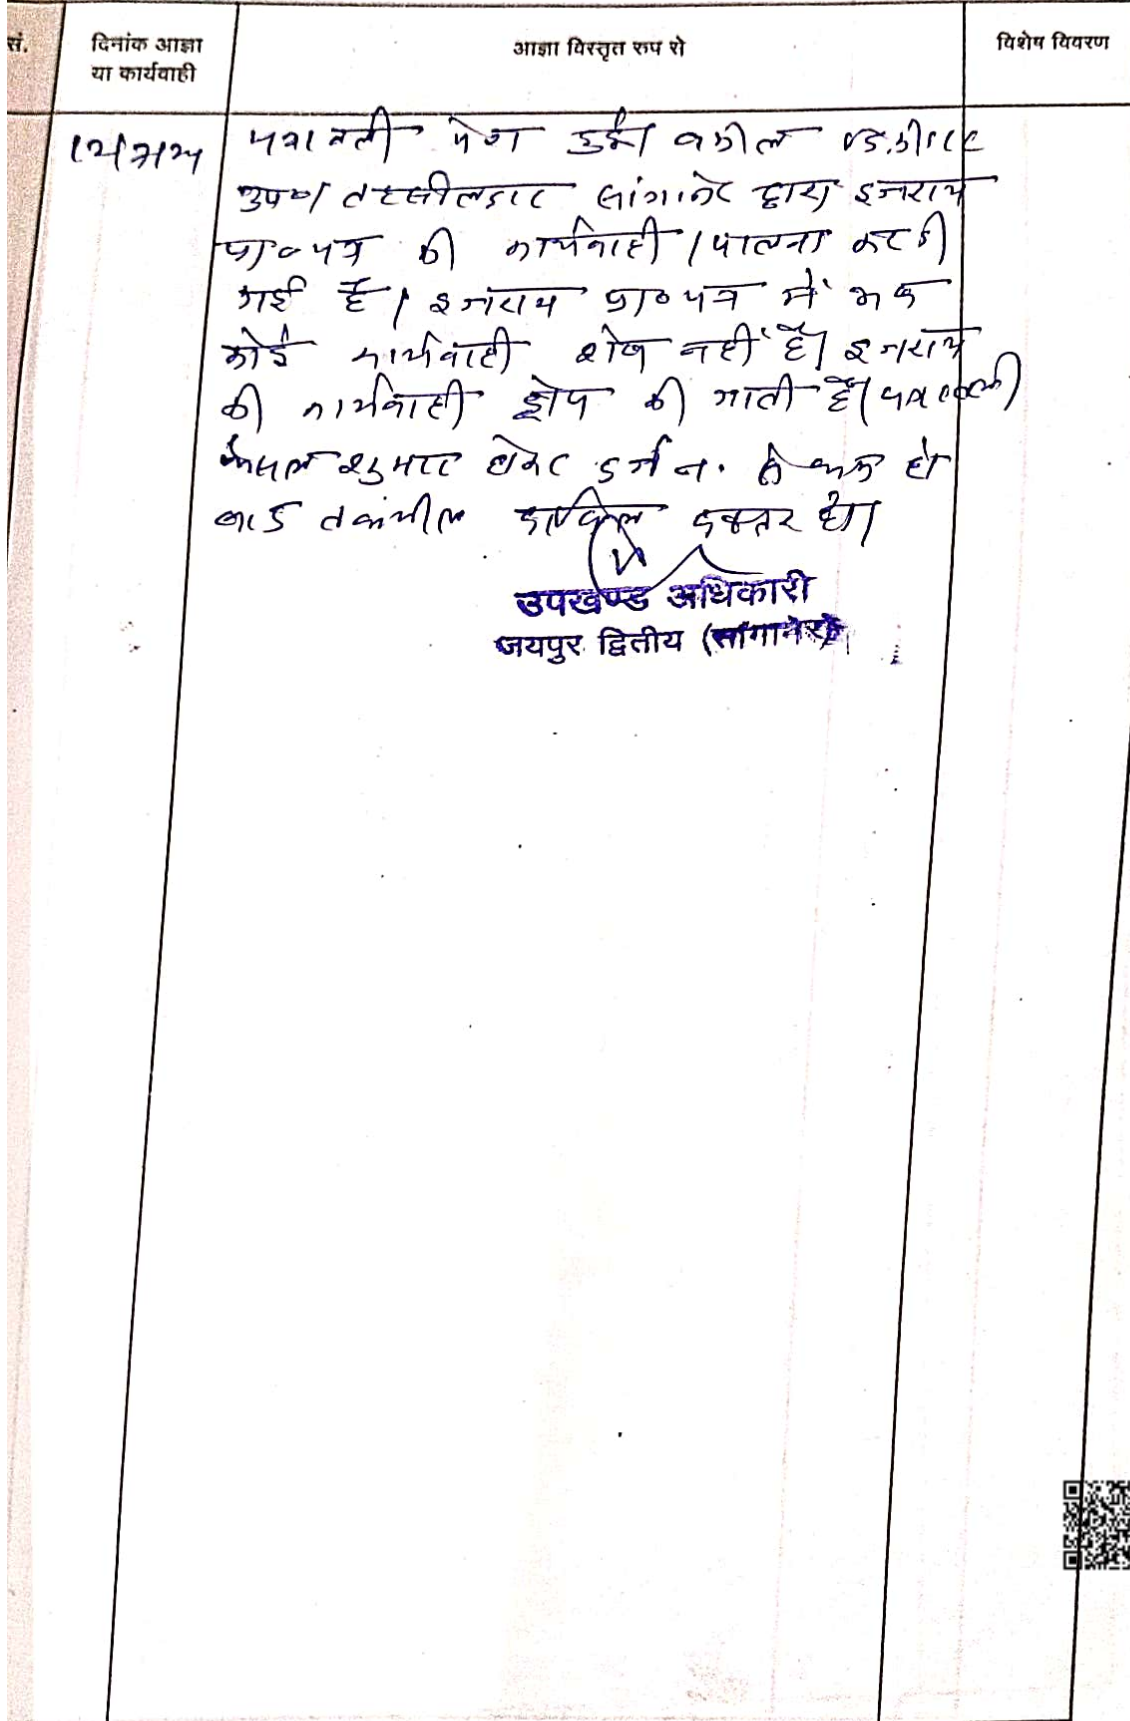 सं. दिनांक आज्ञा या कार्यवाही आज्ञा विस्तृत रुप से विशेष विवरण
पत्रावली पेश हुई। वकील डिक्रीदार
उप०। तहसीलदार सांगानेर द्वारा इजराय
प्रा० पत्र की कार्यवाही / पालना कर दी
गई है। इजराय प्रा० पत्र में अब
कोई कार्यवाही शेष नहीं है। इजराय
की कार्यवाही ड्रोप की जाती है। पत्रावली
फैसल शुमार होकर दर्ज न. से कम हो
बाद तकमील दाखिल दफ्तर हो।
उपखण्ड अधिकारी
जयपुर द्वितीय (सांगानेर)